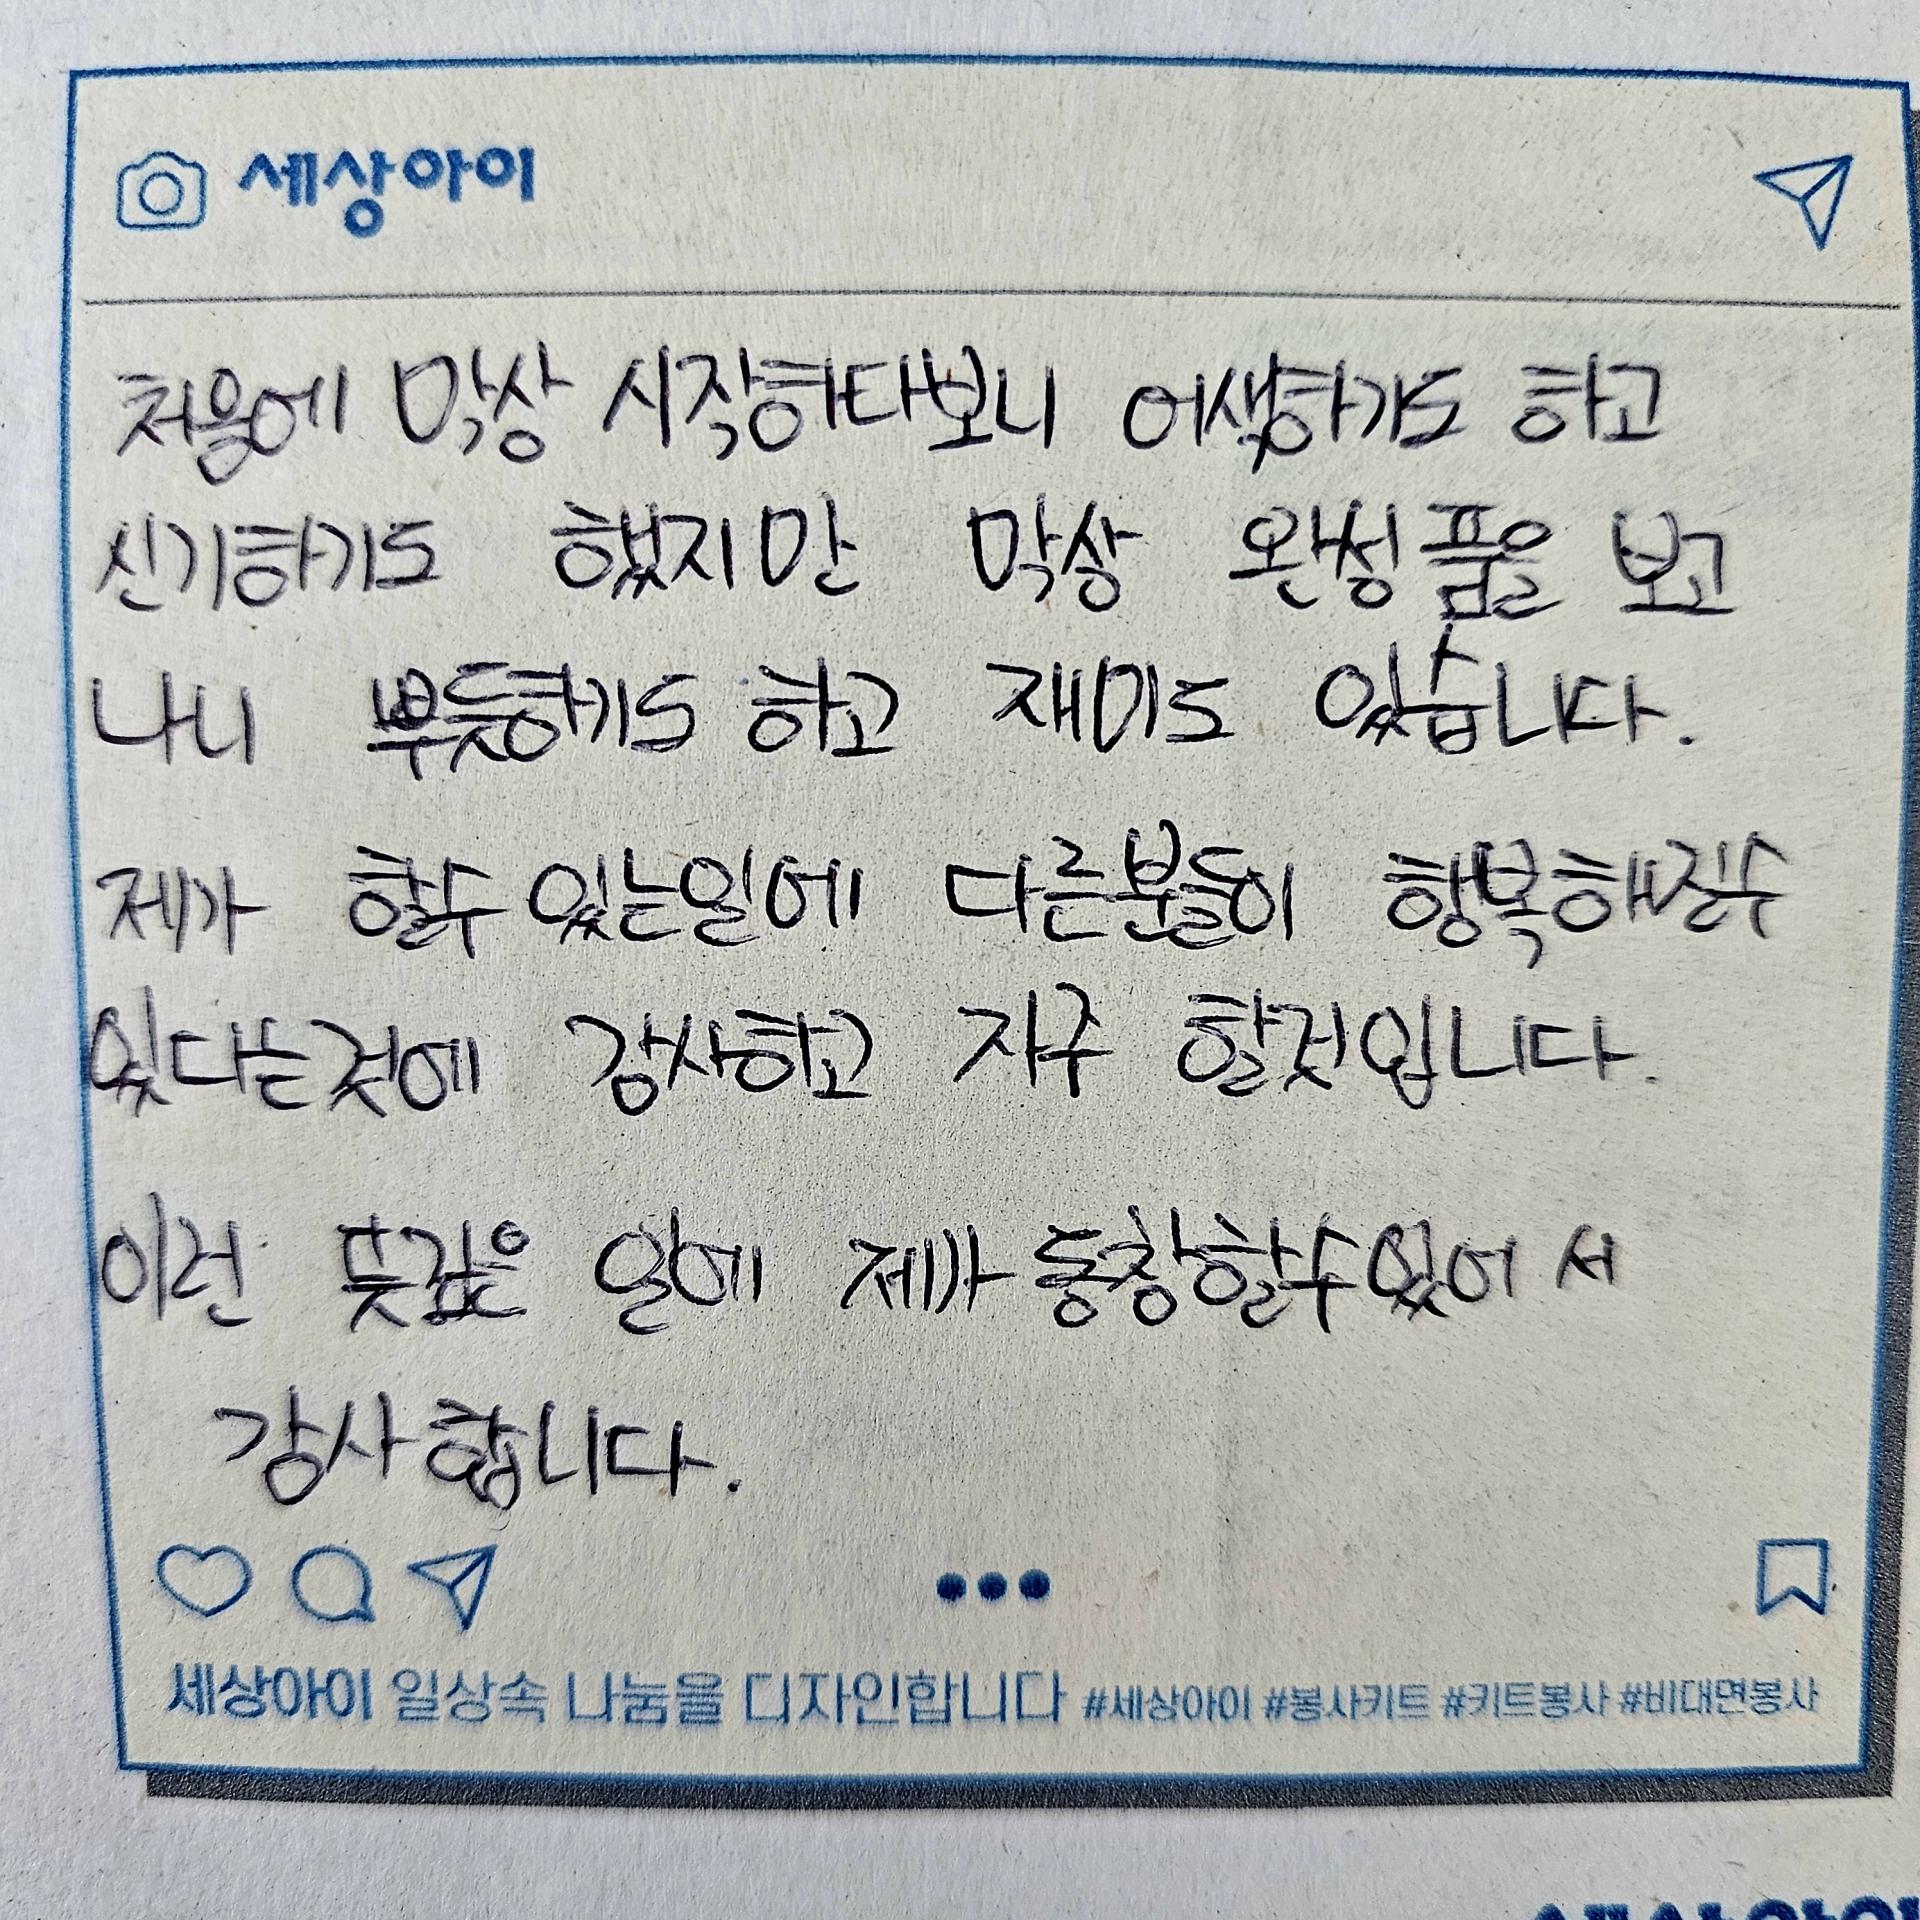 세상아이
처음에 막상 시작하다보니 어색하기도 하고
신기하기도 했지만 막상 완성품을 보고
나니 뿌듯하기도 하고 재미도 있습니다.
제가 할수 있는일에 다른분들이 행복해질수
있다는것에 감사하고 자주 할것입니다.
이런 뜻깊은 일에 제가 동참할수있어서
감사합니다.
세상아이 일상속 나눔을 디자인합니다 #세상아이 #봉사키트 #키트봉사 #비대면봉사